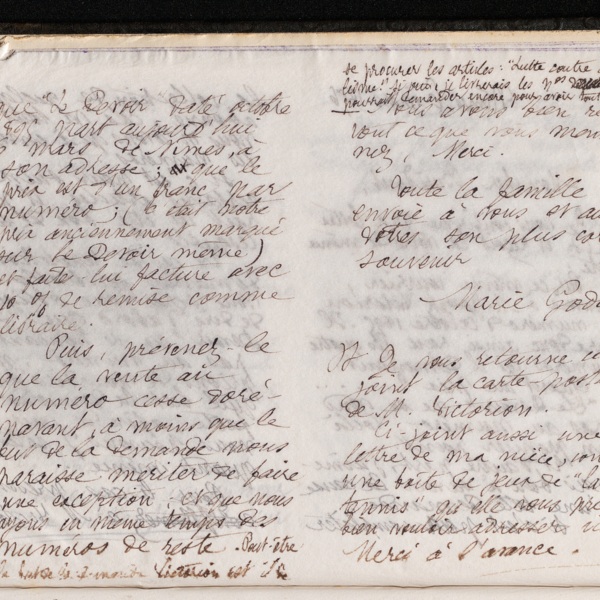 que "Le Devoir" daté octobre
1895 part aujourd'hui
mars de Nîmes, à
son adresse; que le
prix est d'un franc par
numéro; (c'était notre
prix anciennement marqué
sur le Devoir même)
et faites lui facture avec
10 % de remise comme
libraire.
Puis, prévenez-le
que la vente au
numéro cesse doré-
navant, à moins que le
but de la demande nous
paraisse mériter de faire
une exception et que nous
ayons en même temps des
numéros de reste. Peut-être
le but de la demande Victorion est de
se procurer les articles: "Lutte contre
je livrerais les nos
pourrait demander encore pour avoir tout
avons bien re
tout ce que vous mon
nez, Merci.
Toute la famille
envoie à vous et au
vôtres son plus cor
souvenir
Marie God
Je vous retourne ci
joint la carte-post
de M. Victorion.
Ci joint aussi une
lettre de ma nièce, con
une boîte de jeux de "la
tennis qu'elle vous prie
bien vouloir adresser
Merci à l'avance.